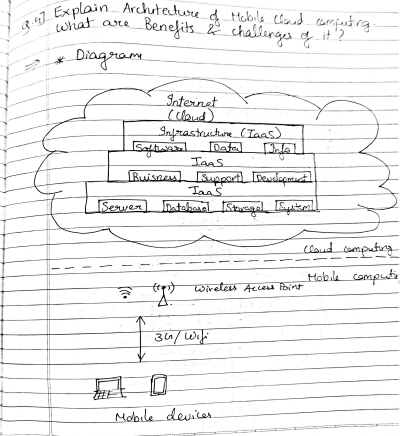 Q.4] Explain Architecture of Mobile Cloud computing.
What are Benefits & challenges of it?
⇒ * Diagram
Internet
(Cloud)
Infrastructure (IaaS)
Software Data Info
IaaS
Buisness Support Development
IaaS
Server Database Storage System
Cloud computing
Mobile computi
Wireless Access Point
3G/Wifi
Mobile devices